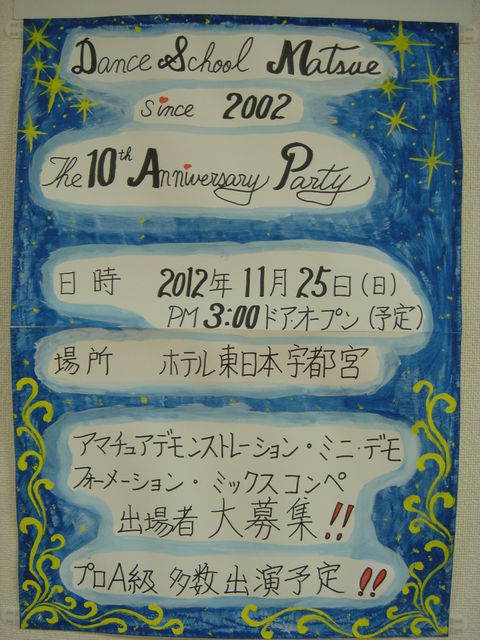 Dance School Matsue
Since 2002
The 10th Anniversary Party
日時 2012年11月25日(日)
PM 3:00 ドアオープン(予定)
場所 ホテル東日本宇都宮
アマチュアデモンストレーション・ミニ・デモ
フォーメーション・ミックスコンペ
出場者 大募集!!
プロA級 多数出演予定!!